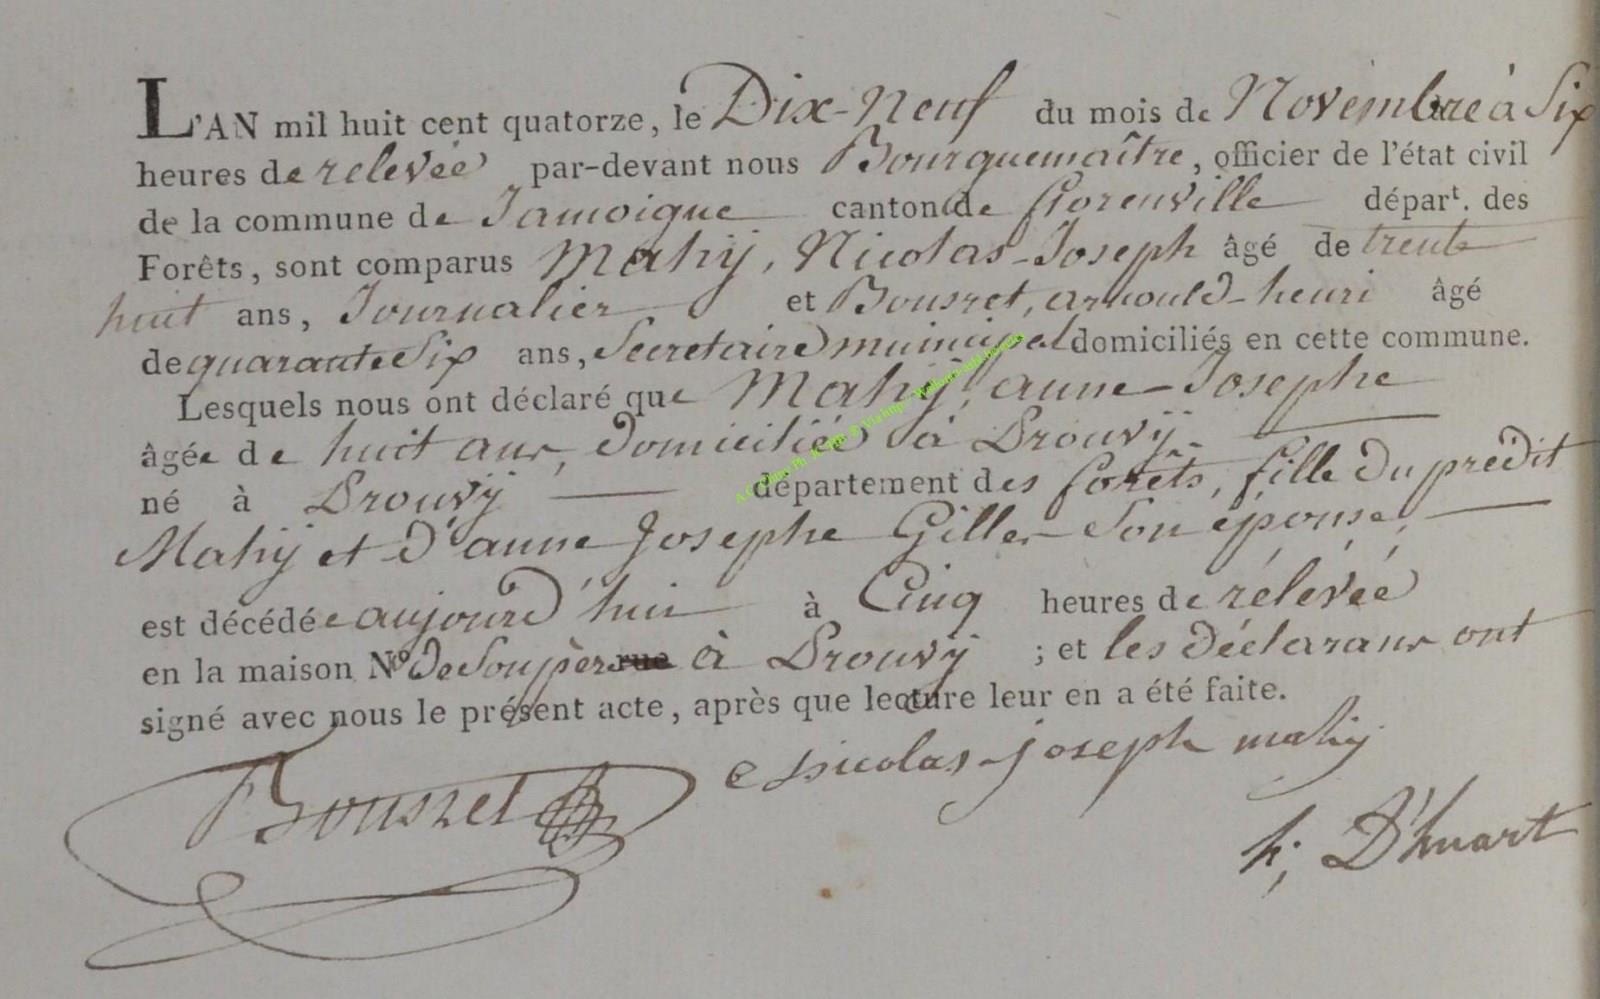 L'AN mil huit cent quatorze, le Dix-Neuf du mois de Novembre à Six
heures de relevée par-devant nous Bourguemaître, officier de l'état civil
de la commune de Jamoigne canton de florenville départ. des
Forêts, sont comparus Mahÿ, Nicolas-Joseph âgé de trente
huit ans, Journalier et Bousret, arnould-henri âgé
de quarante Six ans, Secretaire municipal domiciliés en cette commune.
Lesquels nous ont déclaré que Mahÿ, anne-Josephe
âgée de huit ans, domiciliée à Prouvÿ
né à Prouvÿ département des forêts, fille du predit
Mahÿ et d'anne Josephe Gilles Son épouse,
est décédée aujourd'hui à Cinq heures de rélévée
en la maison No de Son père rue à Prouvÿ ; et les déclarans ont
signé avec nous le présent acte, après que lecture leur en a été faite.
Nicolas-joseph mahy
Bousret
h; D'huart